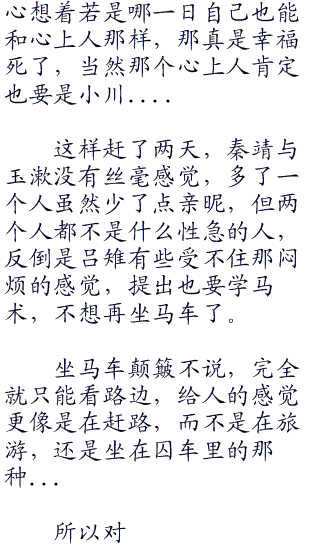 心想着若是哪一日自己也能
和心上人那样，那真是幸福
死了，当然那个心上人肯定
也要是小川....
这样赶了两天，秦靖与
玉漱没有丝毫感觉，多了一
个人虽然少了点亲昵，但两
个人都不是什么性急的人，
反倒是吕雉有些受不住那闷
烦的感觉，提出也要学马
术，不想再坐马车了。
坐马车颠簸不说，完全
就只能看路边，给人的感觉
更像是在赶路，而不是在旅
游，还是坐在囚车里的那
种...
所以对